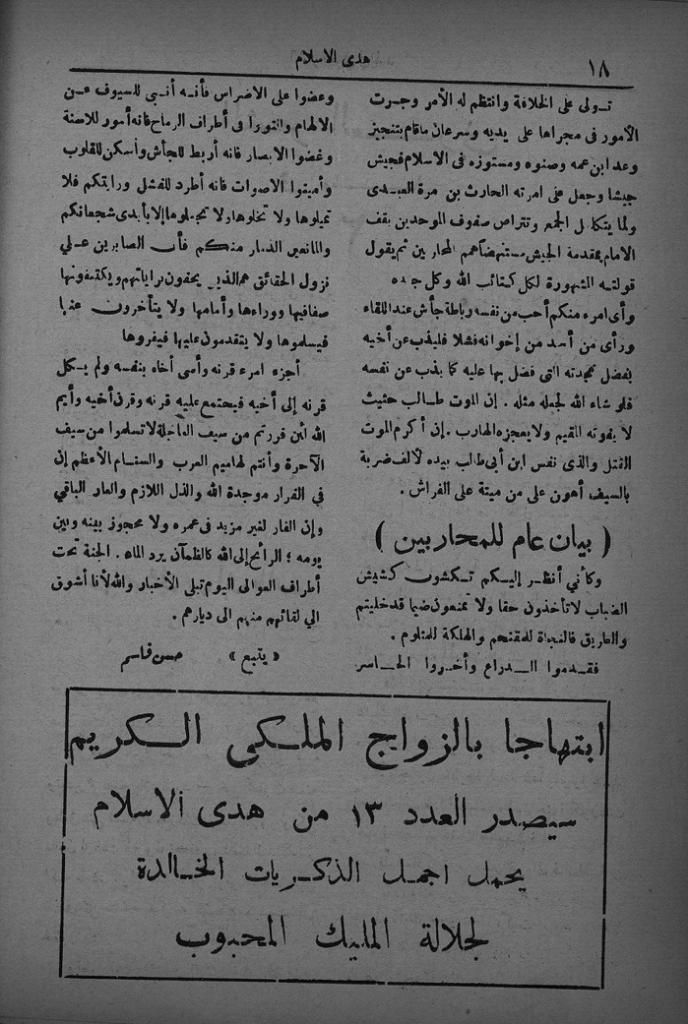 ١٨
هدى الاسلام
تولى على الخلافة وانتظم له الأمر وجرت
الأمور فى مجراها على يديه وسرعان ماقام بتنجيز
وعد ابن عمه وصنوه ومستوزه فى الاسلام فجيش
جيشا وجعل على امرته الحارث بن مرة العبدى
ولما يتكامل الجمع وتتراص صفوف الموحدين يقف
الامام بمقدمة الجيش مستنهضاً همم المحاربين ثم يقول
قولته الشهورة لكل كتائب الله وكل جنده
وأى امرء منكم أحب من نفسه رباطة جأش عند اللقاء
ورأى من أسد من إخوانه فشلا فليذب عن أخيه
بفضل نجدته التى فضل بها عليه كما يذب عن نفسه
فلو شاء الله لجعله مثله . إن الموت طالب حثيث
لا يفوته المقيم ولا يعجزه الهارب . إن أكرم الموت
القتل والذى نفس ابن أبى طالب بيده لألف ضربة
بالسيف أهون على من ميتة على الفراش .
( بيان عام للمحاربين )
وكأني أنظر إليكم تكشون كشيش
الضباب لا تأخذون حقا ولا تمنعون ضيما قد خليتم
والطريق فالنجاة للمقتحم والهلكة للمتلوم .
فقدموا الدراع وأخروا الحاسر
وعضوا على الاضراس فأنه أنبى للسيوف عن
الالهام والتووا فى أطراف الرماح فانه أمور للاسنة
وغضوا الابصار فانه أربط للجأش وأسكن للقلوب
وأميتوا الاصوات فانه أطرد للفشل ورايتكم فلا
تميلوها ولا تخلوها ولا تجعلوها إلا بأيدى شجعانكم
والمانعين الذمار منكم فأن الصابرين على
نزول الحقائق هم الذين يحفون براياتهم ويكتنفونها
صفافيها ووراءها وأمامها ولا يتأخرون عنها
فيسلموها ولا يتقدمون عليها فيفروها
أجزء امرء قرنه وأسى أخاه بنفسه ولم يكل
قرنه إلى أخيه فيجتمع عليه قرنه وقرن أخيه وأيم
الله لئن فررتم من سيف العاجلة لا تسلموا من سيف
الآخرة وأنتم لهاميم العرب والسنام الأعظم إن
في الفرار موجدة الله والذل اللازم والعار الباقي
وإن الفار لغير مزيد فى عمره ولا محجوز بينه وبين
يومه ؛ الرائح إلى الله كالظمآن يرد الماء . الجنة تحت
أطراف العوالى اليوم تبلى الأخبار والله لأنا أشوق
الي لقائهم منهم الى ديارهم .
« يتبع » حسن قاسم
ابتهاجا بالزواج الملكى الكريم
سيصدر العدد ١٣ من هدى الاسلام
يحمل اجمل الذكريات الخالدة
لجلالة المليك المحبوب